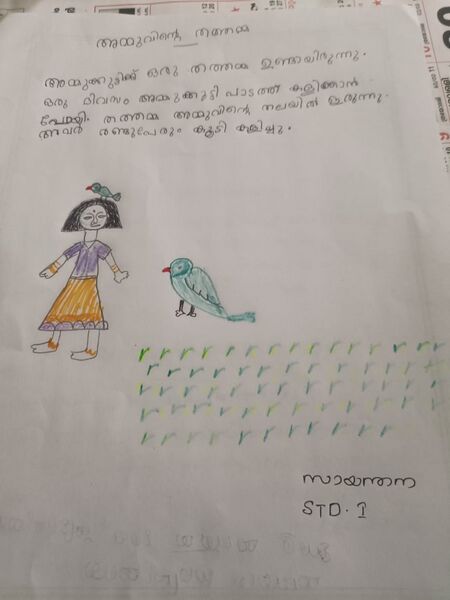 അമ്മുവിന്റെ തത്തമ്മ
അമ്മുക്കുട്ടിക്ക് ഒരു തത്തമ്മ ഉണ്ടായിരുന്നു.
ഒരു ദിവസം അമ്മുക്കുട്ടി പാടത്ത് കളിക്കാൻ
പോയി. തത്തമ്മ അമ്മുവിന്റെ തലയിൽ ഇരുന്നു.
അവർ രണ്ടുപേരും കൂടി കളിച്ചു.
സായന്തന
STD. I